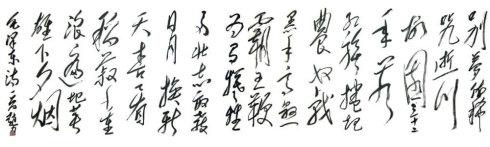 别梦依稀
咒逝川
故园三十二
年前
红旗捲起
農奴戟
黑手高悬
霸主鞭
为有犧牲
多壮志敢教
日月换新
天喜看
稻菽千重
浪遍地英
雄下夕烟
毛泽东诗